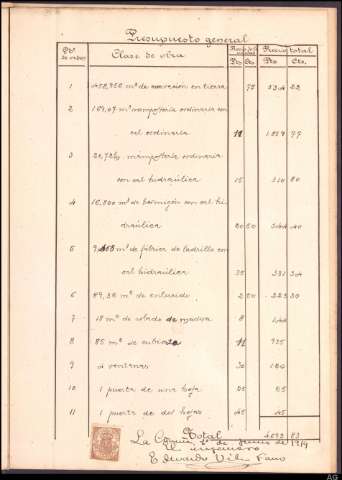 Presupuesto general
Nº de orden Clase de obra Precio de la unidad Precio total
Pts Cts Pts Cts
1 m³ de excavación en tierra 75 334 22
2 mampostería ordinaria con
cal ordinaria 11 77
3 mampostería ordinaria
con cal hidráulica 15 310 80
4 de hormigón con cal hi-
dráulica 20 50 344 40
5 m³ de fábrica de ladrillo con
cal hidráulica 35 331 34
6 m² de enlucido 2 50 223 30
7 18 m² de solado de madera 8 144
8 85 m² de cubierta 11 935
9 ventanas 30 180
10 1 puerta de una hoja 25 25
11 1 puerta de dos hojas 45 45
Total 83
La Coruña de Junio de 1914
El ingeniero
Eduardo Vila Fano
AG